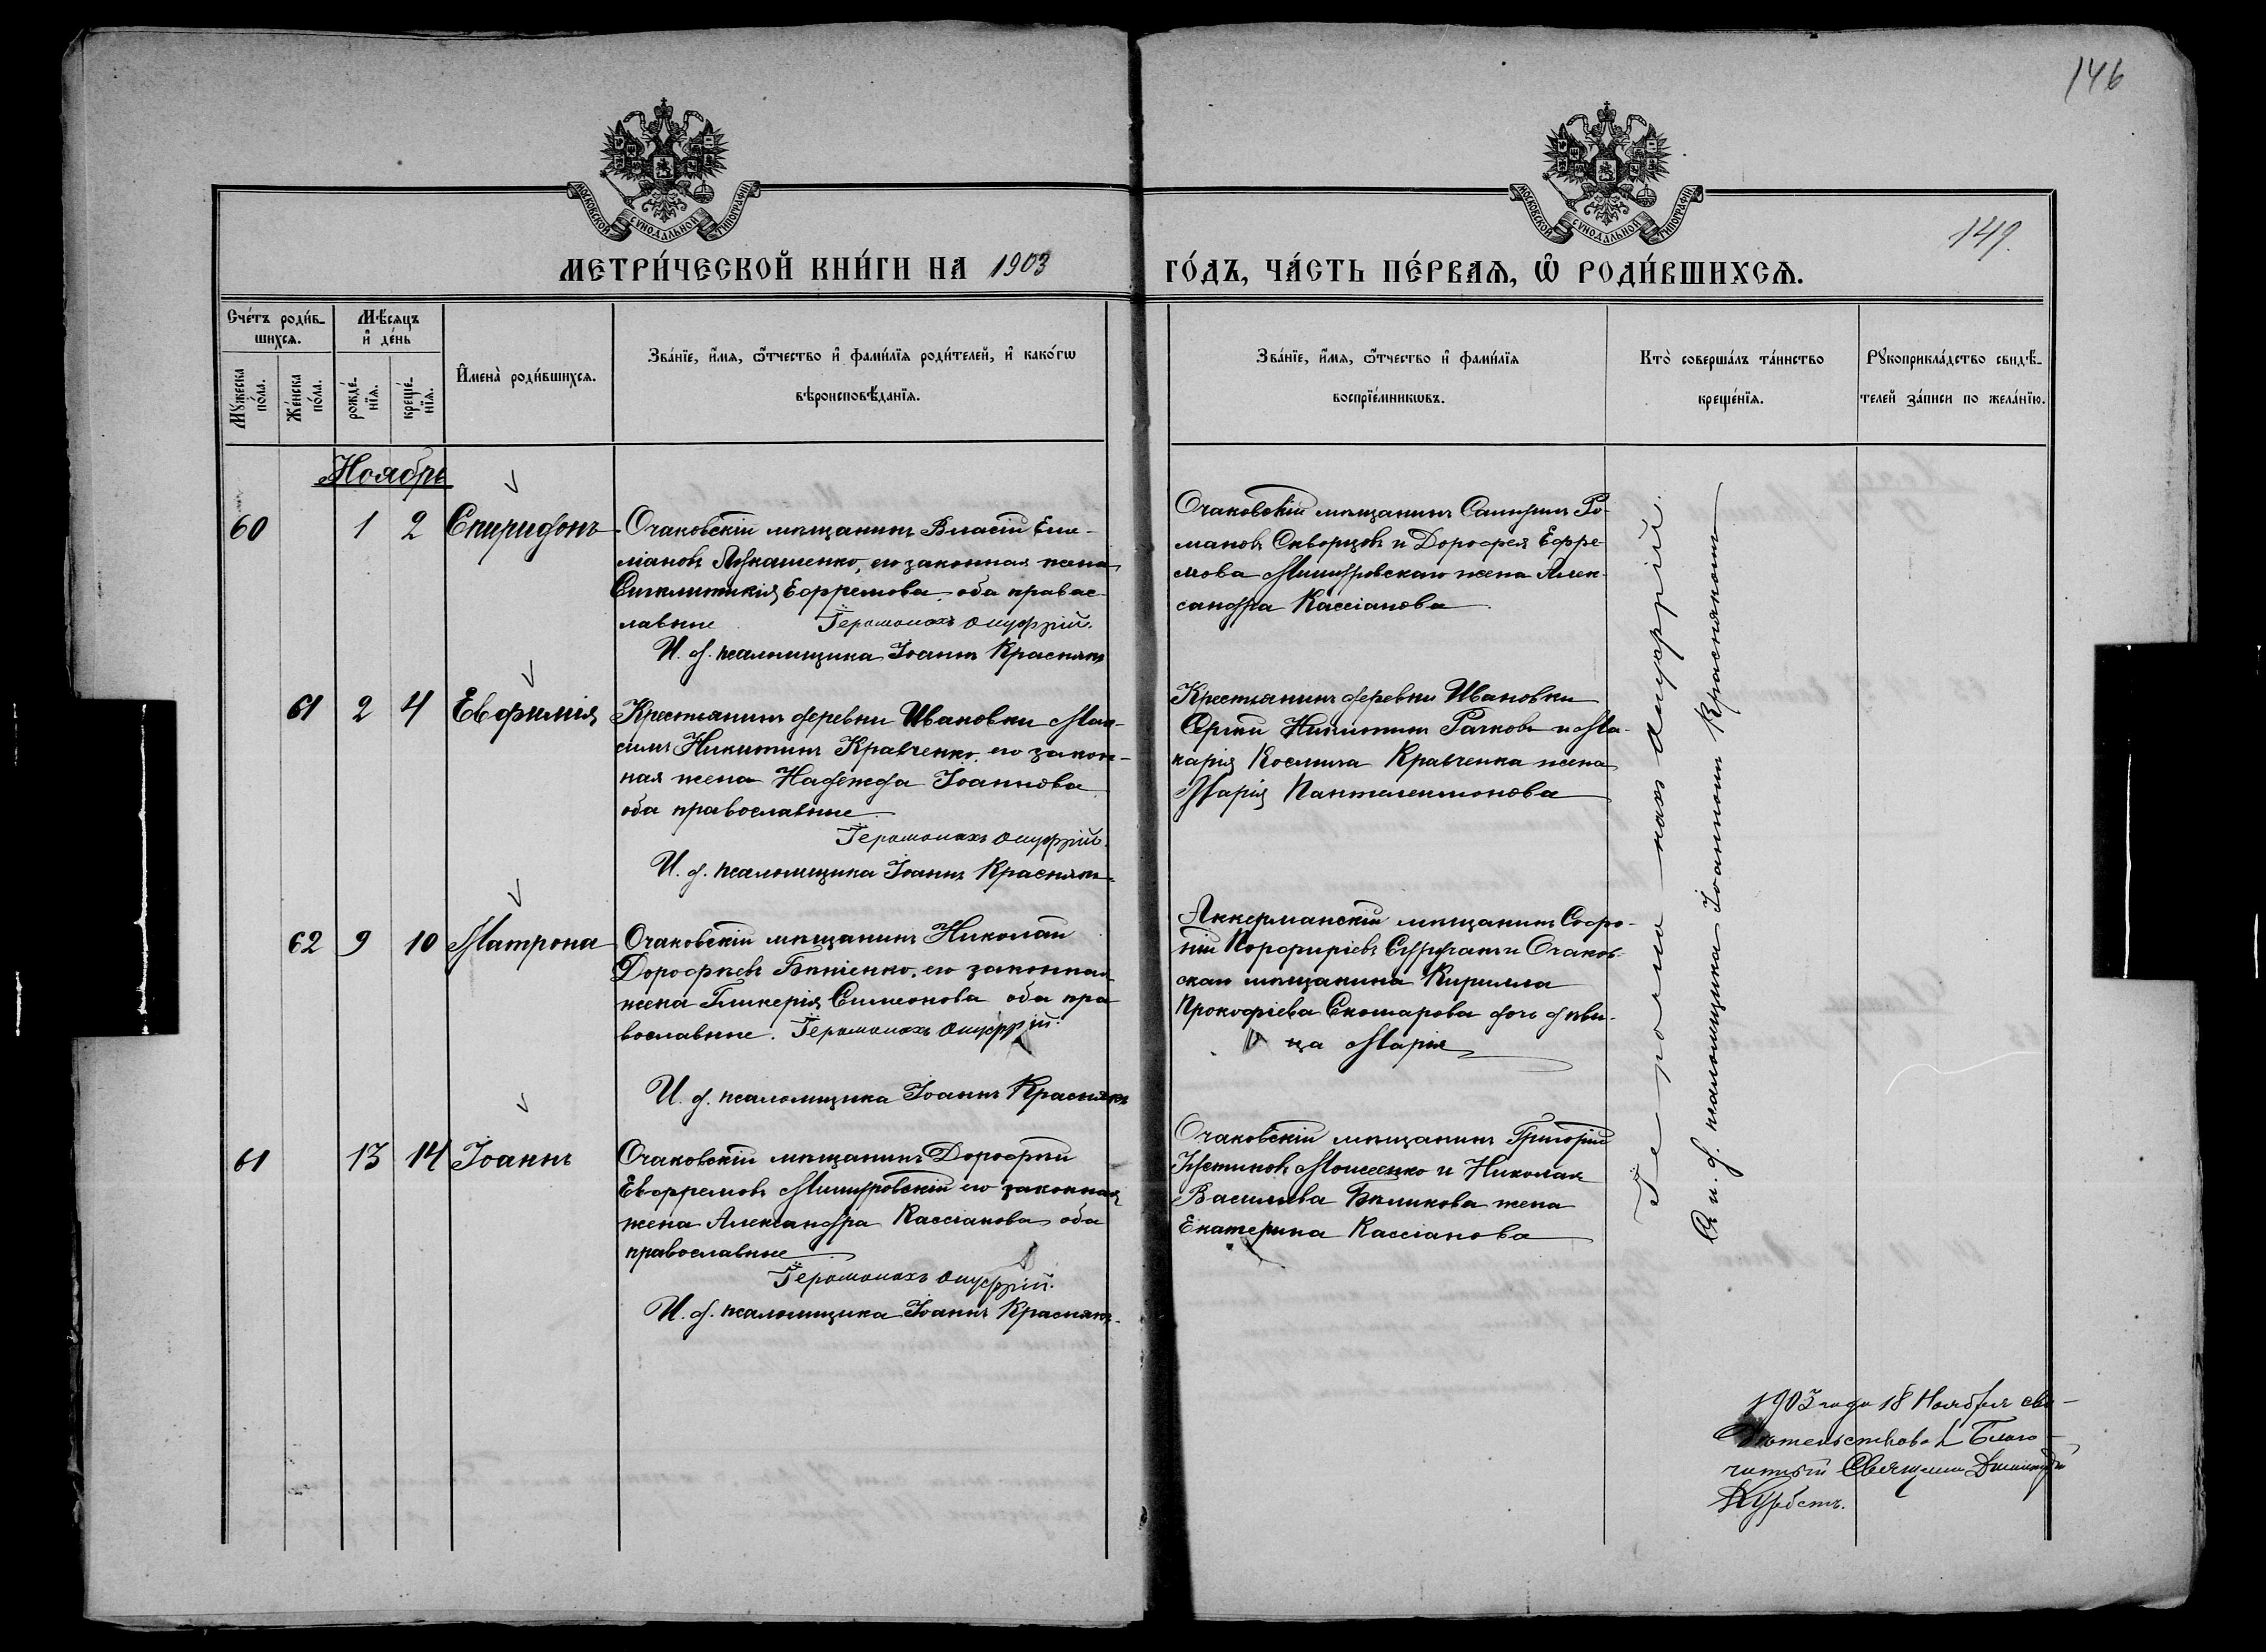 146
149.
МОСКОВСКОЙ СѴНОДАЛЬНОЙ ТИПОГРАФІИ
МОСКОВСКОЙ СѴНОДАЛЬНОЙ ТИПОГРАФІИ
МЕТРИ́ЧЕСКОЙ КНИ́ГИ НА 1903
ГО́ДЪ, ЧА́СТЬ ПЕ́РВАѦ, Ѡ҆ РОДИ́ВШИХСѦ.
Сче́тъ роди́в-
шихсѧ.
Мѣ́сѧцъ
и҆ де́нь
Мꙋ́жеска по́ла.
Же́нска по́ла.
рожде́-нїѧ.
креще́-нїѧ.
И҆мена̀ роди́вшихсѧ.
Зва́нїе, и҆́мѧ, ѻ҆́тчество и҆ фами́лїѧ роди́телей, и҆ како́гѡ
вѣроисповѣ́данїѧ.
Зва́нїе, и҆́мѧ, ѻ҆́тчество и҆ фами́лїѧ
воспрїе́мникѡвъ.
Кто̀ соверша́лъ та́инство
креще́нїѧ.
Рꙋкоприкла́дство свидѣ́-
телей за́писи по жела́нїю.
Ноябрь
60 1 2 Спиридонъ
Очаковскій мѣщанинъ Власій Еме-
ліановъ Лукашенко, его законная жена
Сигклитикія Ефремова, оба правос-
лавные Іеромонахъ Онуфрій.
И. д. псаломщика Іоаннъ Краснякъ
Очаковскій мѣщанинъ Ро-
мановъ Скворцовъ и Дорофея Ефре-
мова жена Алек-
сандра Кассіанова
61 2 4 Евфимія
Крестьянинъ деревни Ивановки Мак-
симъ Никитинъ Кравченко, его закон-
ная жена Надежда Іоаннова
оба православные
Іеромонахъ Онуфрій.
И. д. псаломщика Іоаннъ Краснякъ
Крестьянинъ деревни Ивановки
Сергій Никитинъ Рачковъ и Ма-
карія Космича Кравченка жена
Марія Пантелеимонова
62 9 10 Матрона
Очаковскій мѣщанинъ Николай
Дорофеевъ его законная
жена Гликерія Симеонова оба пра-
вославные. Іеромонахъ Онуфрій.
И. д. псаломщика Іоаннъ Краснякъ
Аккерманскій мѣщанинъ Софро-
ній Порфиріевъ и Очаков-
скаго мѣщанина Кирилла
Прокофіева Скотарова дочь дѣви-
ца Марія
61 13 14 Іоаннъ
Очаковскій мѣщанинъ Дорофей
Евфремовъ его законная
жена Александра Кассіанова оба
православные
Іеромонахъ Онуфрій.
И. д. псаломщика Іоаннъ Краснякъ
Очаковскій мѣщанинъ Григорій
Устиновъ и Николая
Васильева Бѣликова жена
Екатерина Кассіанова
Іеромонахъ Онуфрій.
Съ и. д. псаломщика Іоанномъ Краснякомъ
1903 года 18 Ноября сви-
дѣтельствовалъ Благо-
чинный Священ. Димитрій